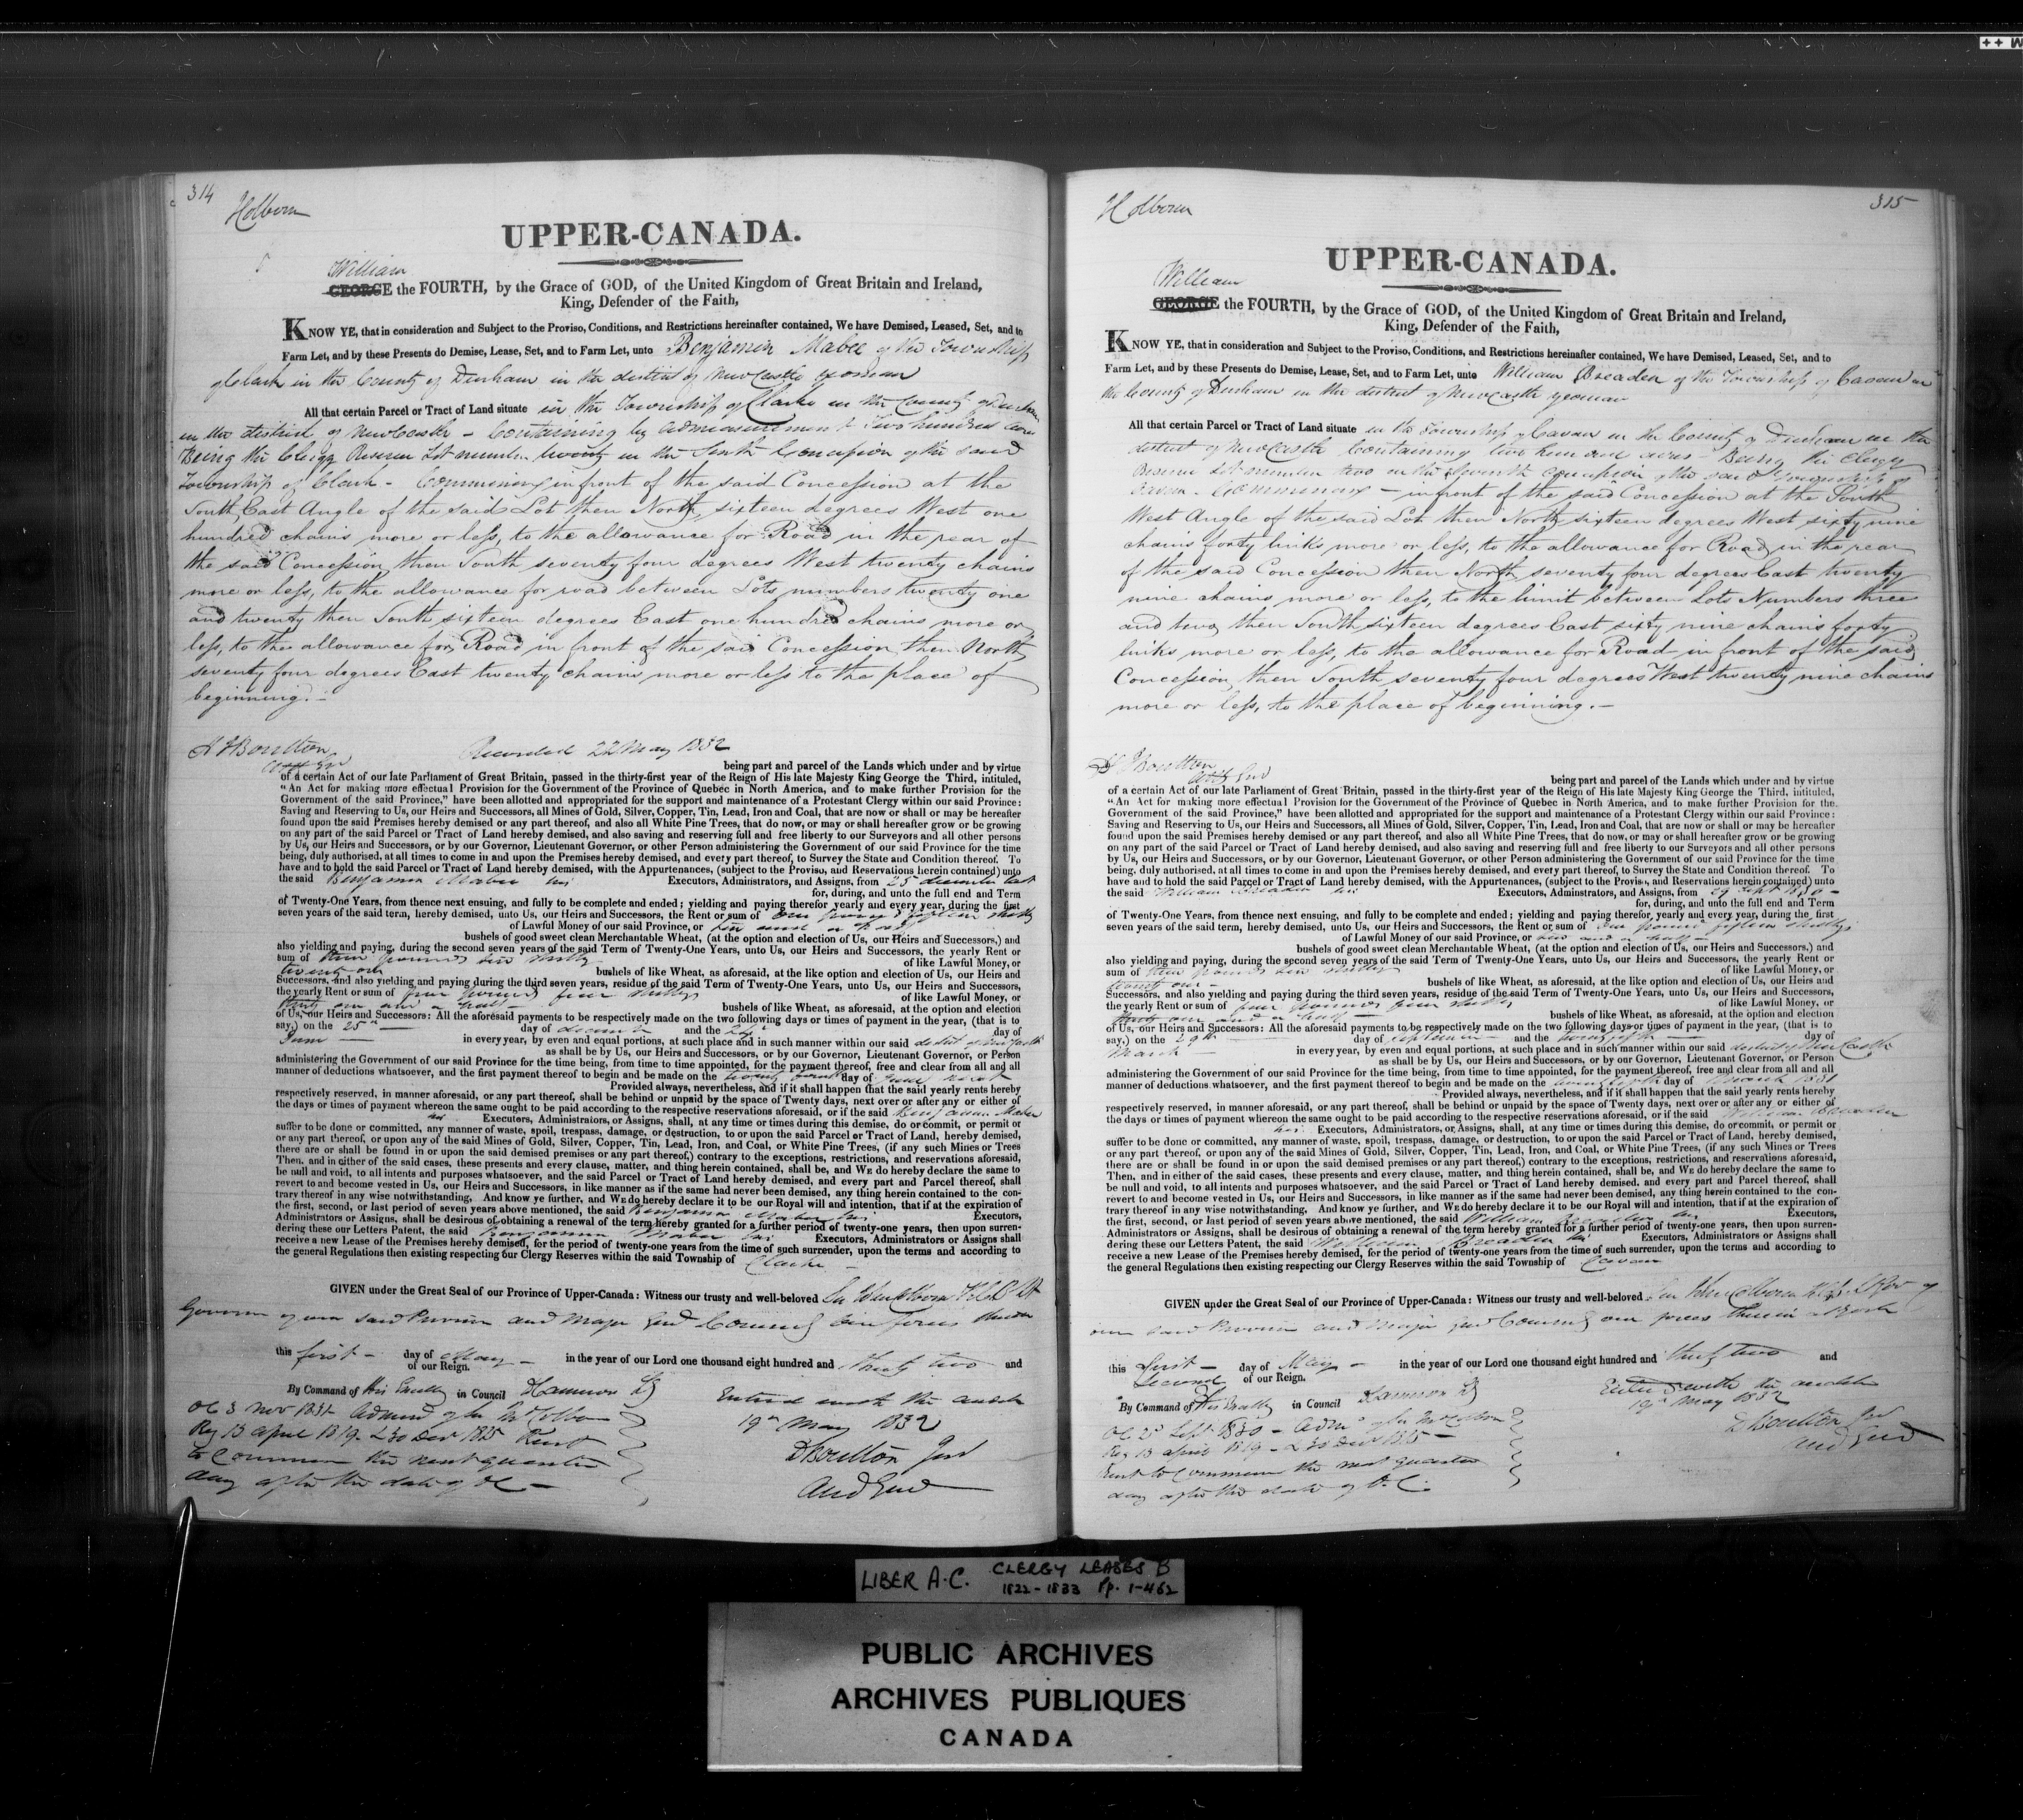 314
Holborn
UPPER-CANADA.
William
GEORGE the FOURTH, by the Grace of GOD, of the United Kingdom of Great Britain and Ireland,
King, Defender of the Faith,
KNOW YE, that in consideration and Subject to the Proviso, Conditions, and Restrictions hereinafter contained, We have Demised, Leased, Set, and to
Farm Let, and by these Presents do Demise, Lease, Set, and to Farm Let, unto Benjamin Mabee of the Township
of Clark in the County of Durham in the district of Newcastle yeoman
All that certain Parcel or Tract of Land situate in the Township of Clarke in the County of Durham
in the district of Newcastle - Containing by admeasurement Two hundred acres
Being the Clergy Reserve Lot number twenty in the Tenth Concession of the said
Township of Clark - Commencing in front of the said Concession at the
South East Angle of the said Lot then North, sixteen degrees West one
hundred chains more or less, to the allowance for Road in the rear of
the said Concession, then South seventy four degrees West twenty chains
more or less, to the allowance for road between Lots numbers twenty one
and twenty then South sixteen degrees East one hundred chains more or
less, to the allowance for Road in front of the said Concession, then North
seventy four degrees East twenty chains more or less to the place of
beginning. -
H J Boulton
Att Gen
Recorded 22 May 1832
being part and parcel of the Lands which under and by virtue
of a certain Act of our late Parliament of Great Britain, passed in the thirty-first year of the Reign of His late Majesty King George the Third, intituled,
"An Act for making more effectual Provision for the Government of the Province of Quebec in North America, and to make further Provision for the
Government of the said Province," have been allotted and appropriated for the support and maintenance of a Protestant Clergy within our said Province:
Saving and Reserving to Us, our Heirs and Successors, all Mines of Gold, Silver, Copper, Tin, Lead, Iron and Coal, that are now or shall or may be hereafter
found upon the said Premises hereby demised or any part thereof, and also all White Pine Trees, that do now, or may or shall hereafter grow or be growing
on any part of the said Parcel or Tract of Land hereby demised, and also saving and reserving full and free liberty to our Surveyors and all other persons
by Us, our Heirs and Successors, or by our Governor, Lieutenant Governor, or other Person administering the Government of our said Province for the time
being, duly authorised, at all times to come in and upon the Premises hereby demised, and every part thereof, to Survey the State and Condition thereof. To
have and to hold the said Parcel or Tract of Land hereby demised, with the Appurtenances, (subject to the Proviso, and Reservations herein contained) unto
the said Benjamin Mabee his Executors, Administrators, and Assigns, from 25 december last
for, during, and unto the full end and Term
of Twenty-One Years, from thence next ensuing, and fully to be complete and ended; yielding and paying therefor yearly and every year, during the first
seven years of the said term, hereby demised, unto Us, our Heirs and Successors, the Rent or sum of one pound fifteen shillgs
of Lawful Money of our said Province, or ten and a half
bushels of good sweet clean Merchantable Wheat, (at the option and election of Us, our Heirs and Successors,) and
also yielding and paying, during the second seven years of the said Term of Twenty-One Years, unto Us, our Heirs and Successors, the yearly Rent or
sum of three pounds ten shillgs of like Lawful Money, or
twenty one bushels of like Wheat, as aforesaid, at the like option and election of Us, our Heirs and
Successors, and also yielding and paying during the third seven years, residue of the said Term of Twenty-One Years, unto Us, our Heirs and Successors,
the yearly Rent or sum of five pounds five shillgs of like Lawful Money, or
thirty one and a half - bushels of like Wheat, as aforesaid, at the option and election
of Us, our Heirs and Successors: All the aforesaid payments to be respectively made on the two following days or times of payment in the year, (that is to
say,) on the 25th day of december and the 24th day of
June in every year, by even and equal portions, at such place and in such manner within our said district of Newcastle
as shall be by Us, our Heirs and Successors, or by our Governor, Lieutenant Governor, or Person
administering the Government of our said Province for the time being, from time to time appointed, for the payment thereof, free and clear from all and all
manner of deductions whatsoever, and the first payment thereof to begin and be made on the twenty fourth day of June next
Provided always, nevertheless, and if it shall happen that the said yearly rents hereby
respectively reserved, in manner aforesaid, or any part thereof, shall be behind or unpaid by the space of Twenty days, next over or after any or either of
the days or times of payment whereon the same ought to be paid according to the respective reservations aforesaid, or if the said Benjamin Mabee
his Executors, Administrators, or Assigns, shall, at any time or times during this demise, do or commit, or permit or
suffer to be done or committed, any manner of waste, spoil, trespass, damage, or destruction, to or upon the said Parcel or Tract of Land, hereby demised,
or any part thereof, or upon any of the said Mines of Gold, Silver, Copper, Tin, Lead, Iron, and Coal, or White Pine Trees, (if any such Mines or Trees
there are or shall be found in or upon the said demised premises or any part thereof,) contrary to the exceptions, restrictions, and reservations aforesaid,
Then, and in either of the said cases, these presents and every clause, matter, and thing herein contained, shall be, and WE do hereby declare the same to
be null and void, to all intents and purposes whatsoever, and the said Parcel or Tract of Land hereby demised, and every part and Parcel thereof, shall
revert to and become vested in Us, our Heirs and Successors, in like manner as if the same had never been demised, any thing herein contained to the con-
trary thereof in any wise notwithstanding. And know ye further, and WE do hereby declare it to be our Royal will and intention, that if at the expiration of
the first, second, or last period of seven years above mentioned, the said Benjamin Mabee his Executors,
Administrators or Assigns, shall be desirous of obtaining a renewal of the term hereby granted for a further period of twenty-one years, then upon surren-
dering these our Letters Patent, the said Benjamin Mabee his Executors, Administrators or Assigns shall
receive a new Lease of the Premises hereby demised, for the period of twenty-one years from the time of such surrender, upon the terms and according to
the general Regulations then existing respecting our Clergy Reserves within the said Township of Clarke -
GIVEN under the Great Seal of our Province of Upper-Canada: Witness our trusty and well-beloved Sir
Governor of our said Province and Major Genl Commg our forces therein
this first - day of May - in the year of our Lord one thousand eight hundred and thirty two and
of our Reign.
By Command of His Excelly in Council D Cameron
OC 3 Nov 1831 -
Reg 13 april 1819 - & 30 Dec 1815 Rent
to Commence the next quarter
day after the date of OC -
Entered with the audr
19th May 1832
D Boulton Jnr
Aud Genl
315
Holborn
UPPER-CANADA.
William
GEORGE the FOURTH, by the Grace of GOD, of the United Kingdom of Great Britain and Ireland,
King, Defender of the Faith,
KNOW YE, that in consideration and Subject to the Proviso, Conditions, and Restrictions hereinafter contained, We have Demised, Leased, Set, and to
Farm Let, and by these Presents do Demise, Lease, Set, and to Farm Let, unto William Breaden of the Township of Cavan in
the County of Durham in the district of Newcastle yeoman
All that certain Parcel or Tract of Land situate in the Township of Cavan in the County of Durham in the
district of Newcastle Containing two hundred acres - Being the Clergy
Reserve Lot number two in the Seventh Concession of the said Township of
Cavan - Commencing - in front of the said Concession at the South
West Angle of the said Lot then North sixteen degrees West sixty nine
chains forty links more or less, to the allowance for Road in the rear
of the said Concession then North seventy four degrees East twenty
nine chains more or less, to the limit between Lots Numbers three
and two, then South sixteen degrees East sixty nine chains forty
links more or less, to the allowance for Road in front of the said
Concession, then South seventy four degrees West twenty nine chains
more or less, to the place of beginning. -
H J Boulton
Atty Genl
being part and parcel of the Lands which under and by virtue
of a certain Act of our late Parliament of Great Britain, passed in the thirty-first year of the Reign of His late Majesty King George the Third, intituled,
"An Act for making more effectual Provision for the Government of the Province of Quebec in North America, and to make further Provision for the
Government of the said Province," have been allotted and appropriated for the support and maintenance of a Protestant Clergy within our said Province:
Saving and Reserving to Us, our Heirs and Successors, all Mines of Gold, Silver, Copper, Tin, Lead, Iron and Coal, that are now or shall or may be hereafter
found upon the said Premises hereby demised or any part thereof, and also all White Pine Trees, that do now, or may or shall hereafter grow or be growing
on any part of the said Parcel or Tract of Land hereby demised, and also saving and reserving full and free liberty to our Surveyors and all other persons
by Us, our Heirs and Successors, or by our Governor, Lieutenant Governor, or other Person administering the Government of our said Province for the time
being, duly authorised, at all times to come in and upon the Premises hereby demised, and every part thereof, to Survey the State and Condition thereof. To
have and to hold the said Parcel or Tract of Land hereby demised, with the Appurtenances, (subject to the Proviso, and Reservations herein contained) unto
the said William Breaden his Executors, Administrators, and Assigns, from 29 Sept 1830 -
for, during, and unto the full end and Term
of Twenty-One Years, from thence next ensuing, and fully to be complete and ended; yielding and paying therefor, yearly and every year, during the first
seven years of the said term, hereby demised, unto Us, our Heirs and Successors, the Rent or sum of One pound fifteen shillgs
of Lawful Money of our said Province, or ten and a half -
bushels of good sweet clean Merchantable Wheat, (at the option and election of Us, our Heirs and Successors,) and
also yielding and paying, during the second seven years of the said Term of Twenty-One Years, unto Us, our Heirs and Successors, the yearly Rent or
sum of three pounds ten shillgs of like Lawful Money, or
twenty one - bushels of like Wheat, as aforesaid, at the like option and election of Us, our Heirs and
Successors, and also yielding and paying during the third seven years, residue of the said Term of Twenty-One Years, unto Us, our Heirs and Successors,
the yearly Rent or sum of five pounds five shillgs of like Lawful Money, or
thirty one and a half - bushels of like Wheat, as aforesaid, at the option and election
of Us, our Heirs and Successors: All the aforesaid payments to be respectively made on the two following days or times of payment in the year, (that is to
say,) on the 29th day of september - and the twenty fifth day of
March - in every year, by even and equal portions, at such place and in such manner within our said district of New Castle
as shall be by Us, our Heirs and Successors, or by our Governor, Lieutenant Governor, or Person
administering the Government of our said Province for the time being, from time to time appointed, for the payment thereof, free and clear from all and all
manner of deductions whatsoever, and the first payment thereof to begin and be made on the twenty fifth day of March 1831
Provided always, nevertheless, and if it shall happen that the said yearly rents hereby
respectively reserved, in manner aforesaid, or any part thereof, shall be behind or unpaid by the space of Twenty days, next over or after any or either of
the days or times of payment whereon the same ought to be paid according to the respective reservations aforesaid, or if the said William Breaden
his Executors, Administrators, or Assigns, shall, at any time or times during this demise, do or commit, or permit or
suffer to be done or committed, any manner of waste, spoil, trespass, damage, or destruction, to or upon the said Parcel or Tract of Land, hereby demised,
or any part thereof, or upon any of the said Mines of Gold, Silver, Copper, Tin, Lead, Iron, and Coal, or White Pine Trees, (if any such Mines or Trees
there are or shall be found in or upon the said demised premises or any part thereof,) contrary to the exceptions, restrictions, and reservations aforesaid,
Then, and in either of the said cases, these presents and every clause, matter, and thing herein contained, shall be, and WE do hereby declare the same to
be null and void, to all intents and purposes whatsoever, and the said Parcel or Tract of Land hereby demised, and every part and Parcel thereof, shall
revert to and become vested in Us, our Heirs and Successors, in like manner as if the same had never been demised, any thing herein contained to the con-
trary thereof in any wise notwithstanding. And know ye further, and WE do hereby declare it to be our Royal will and intention, that if at the expiration of
the first, second, or last period of seven years above mentioned, the said William Breaden his Executors,
Administrators or Assigns, shall be desirous of obtaining a renewal of the term hereby granted for a further period of twenty-one years, then upon surren-
dering these our Letters Patent, the said William Breaden his Executors, Administrators or Assigns shall
receive a new Lease of the Premises hereby demised, for the period of twenty-one years from the time of such surrender, upon the terms and according to
the general Regulations then existing respecting our Clergy Reserves within the said Township of Cavan
GIVEN under the Great Seal of our Province of Upper-Canada: Witness our trusty and well-beloved Sir John Colborne of
our said Province and Major Genl Commg our forces therein
this first - day of May - in the year of our Lord one thousand eight hundred and thirty two and
second of our Reign.
By Command of His Excelly in Council D Cameron
OC Sept 1830 -
Reg 13 april 1819 - & 30 Dec 1815 -
Rent to Commence the next quarter
day after the date of O.C.
Entered with the auditor
19th May 1832
D Boulton Jnr
Aud Genl
LIBER A.C. CLERGY LEASES B
1822-1833 Pp. 1-462
PUBLIC ARCHIVES
ARCHIVES PUBLIQUES
CANADA